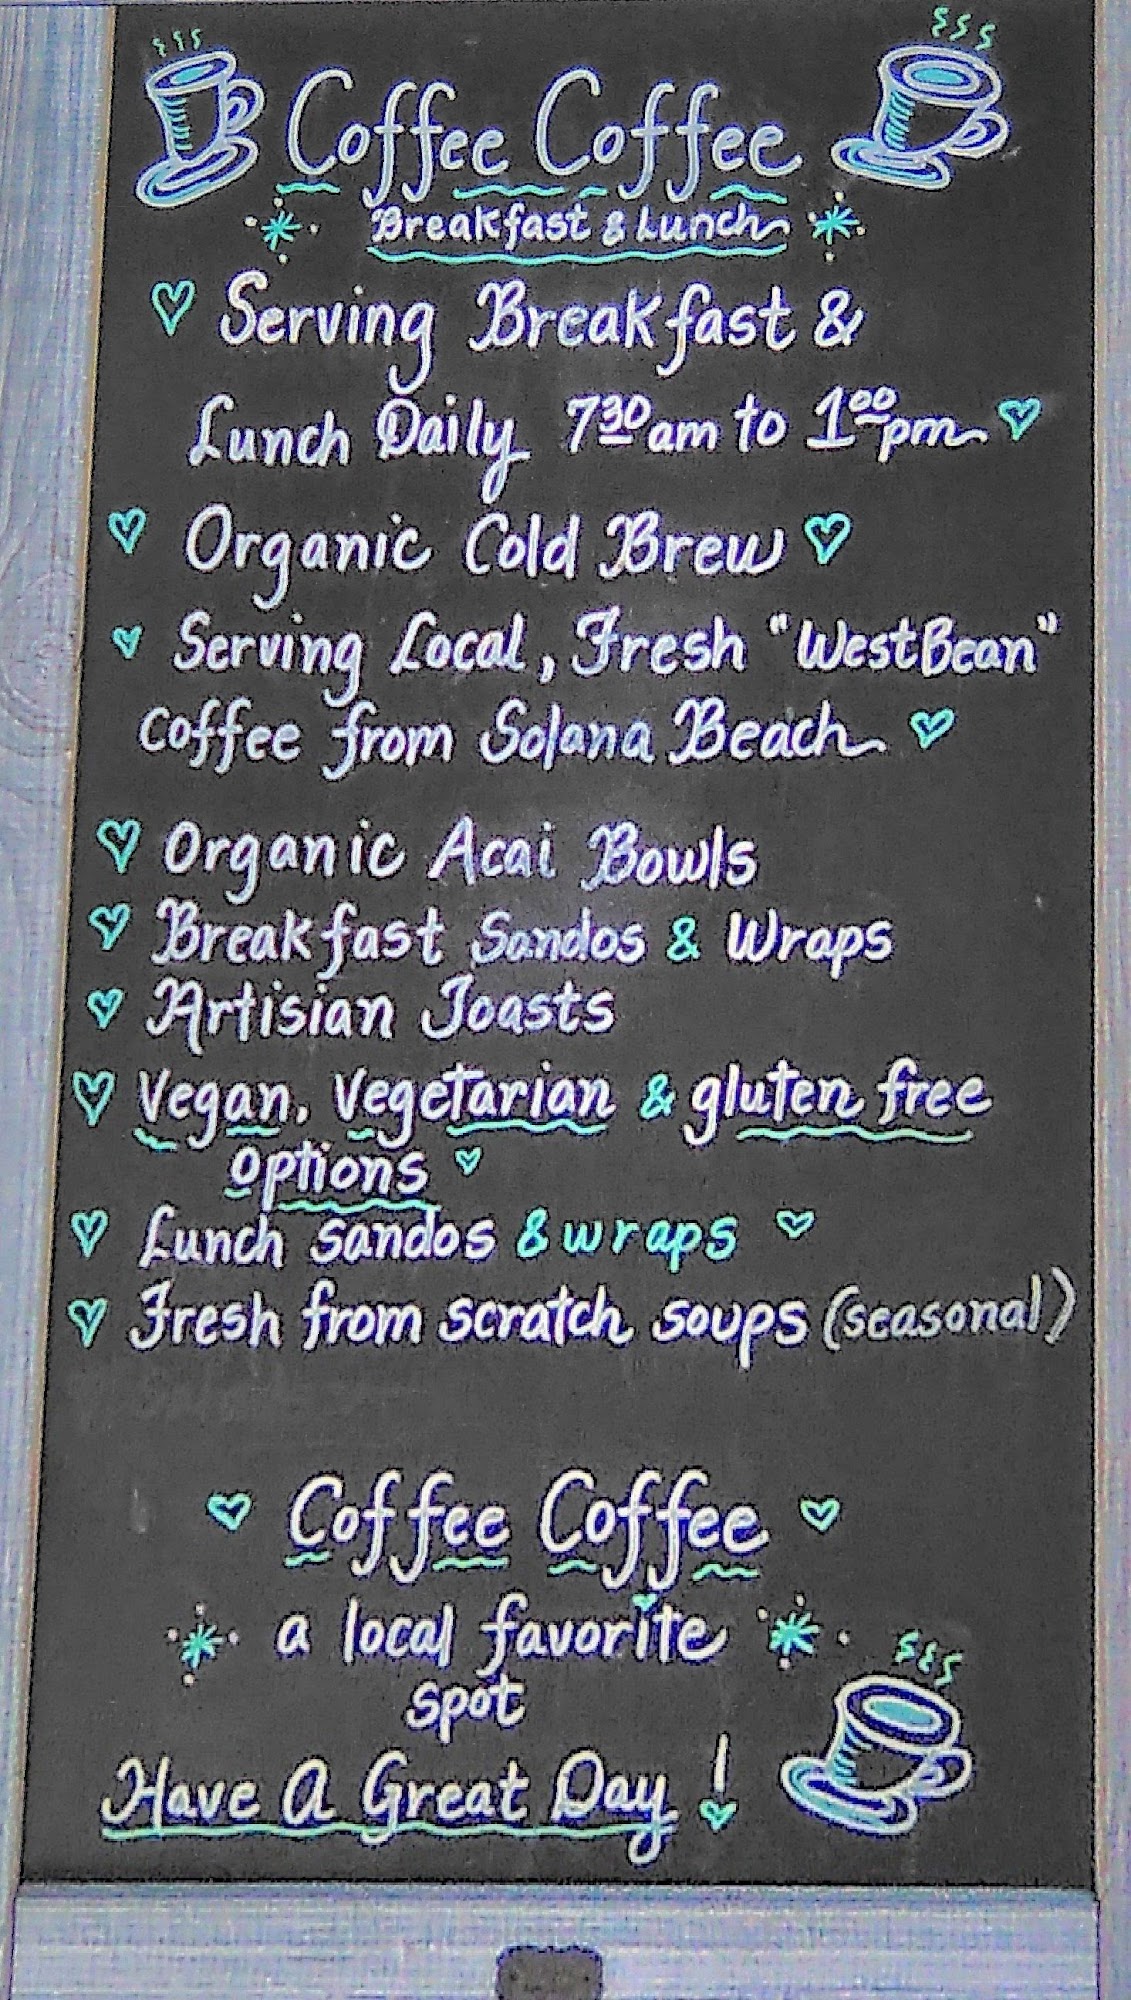 Coffee Coffee
Breakfast & Lunch
Serving Breakfast &
Lunch Daily 730 am to 100 pm
Organic Cold Brew
Serving Local, Fresh "WestBean"
Coffee from Solana Beach
Organic Acai Bowls
Breakfast Sandos & Wraps
Artisian Toasts
Vegan, Vegetarian & gluten free
options
Lunch sandos & wraps
Fresh from scratch soups (seasonal)
Coffee Coffee
a local favorite
spot
Have A Great Day !